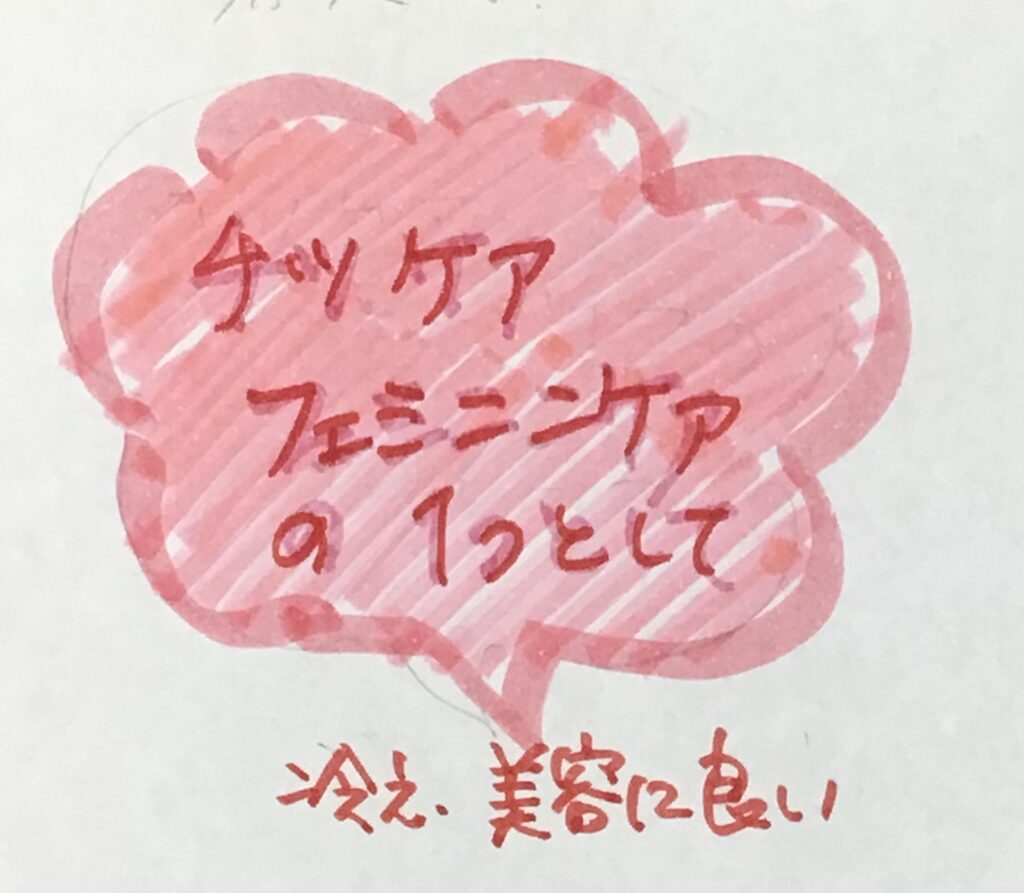 チツケア
フェミニンケア
の1つとして
冷え、美容に良い